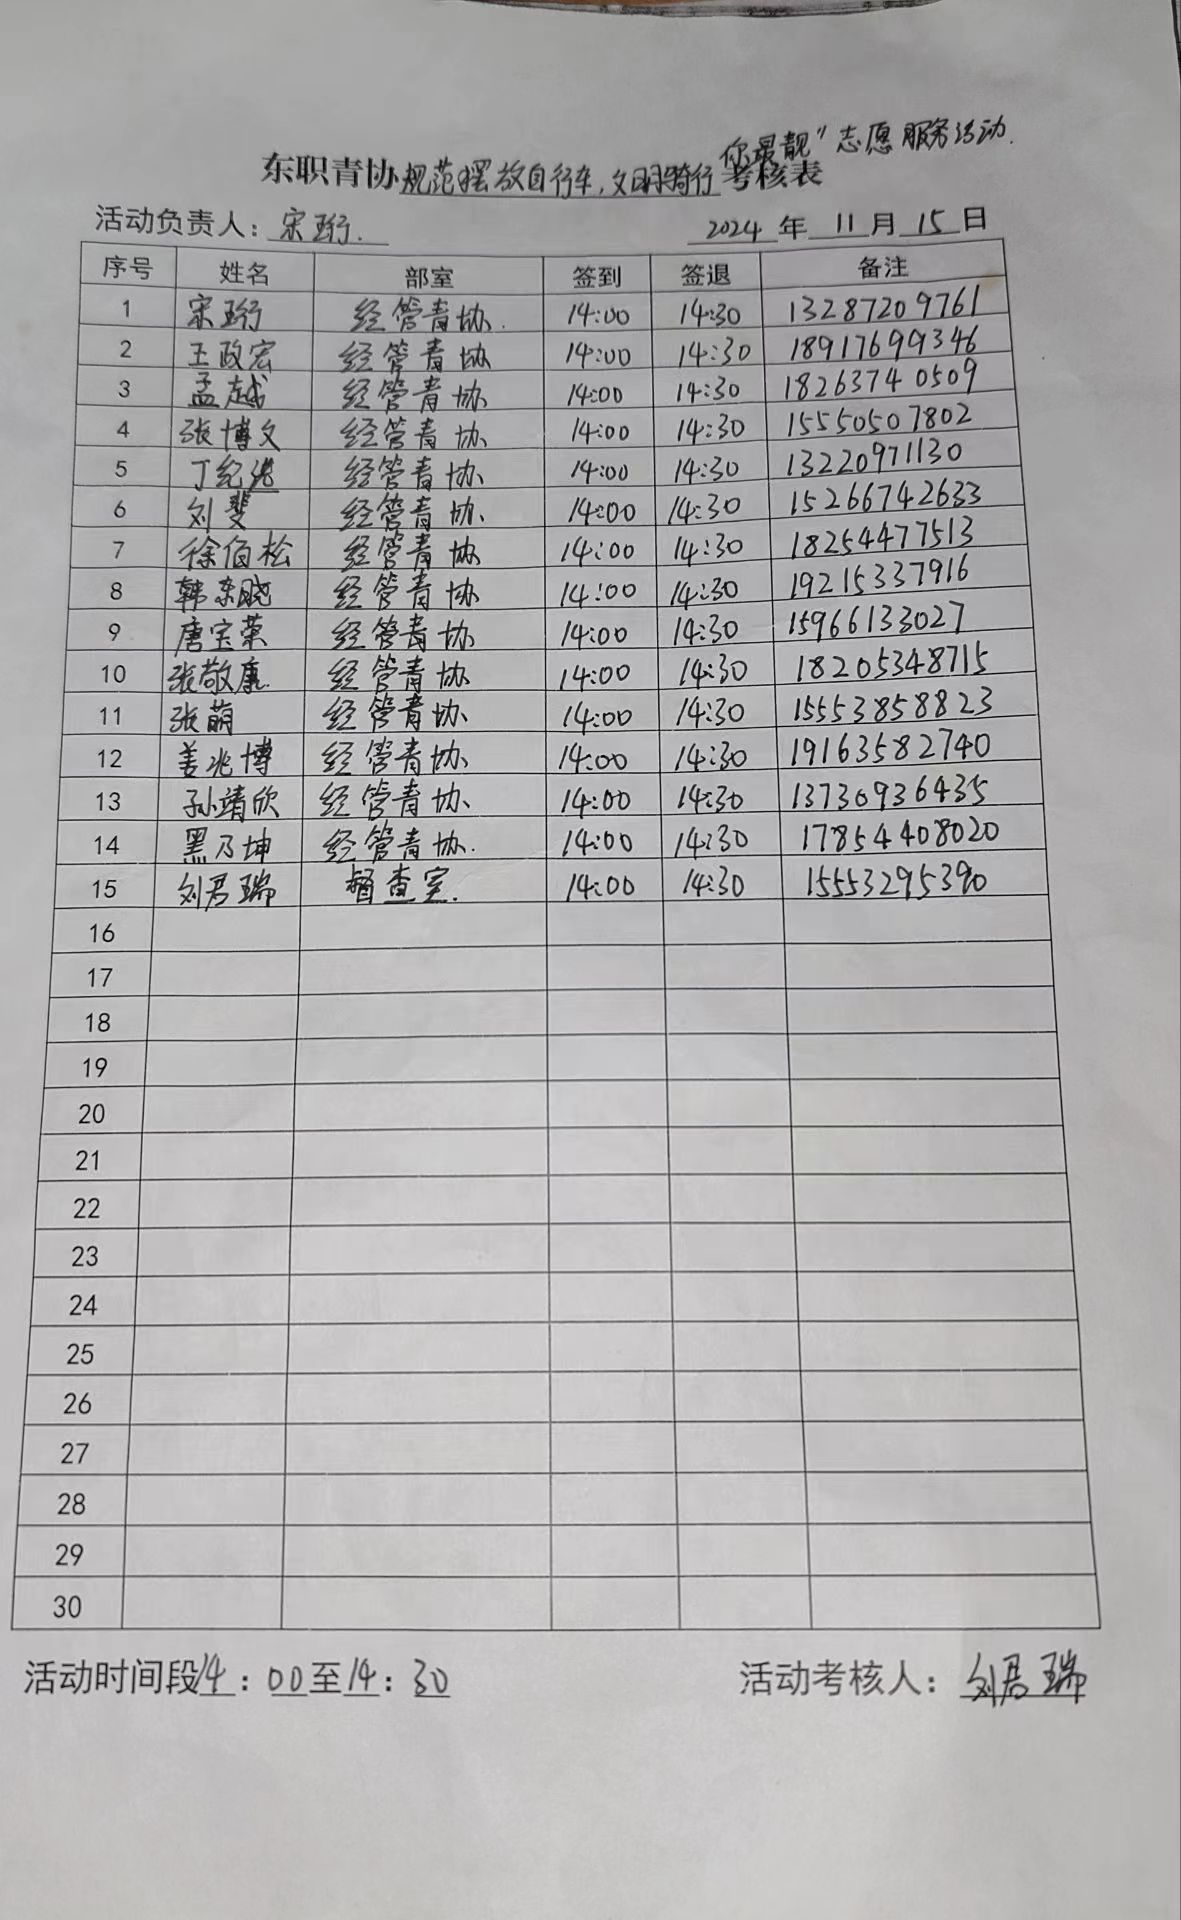 你最靓”志愿服务活动.
东职青协规范摆放自行车,文明骑行考核表
活动负责人：宋珩. 2024年11月15日
序号 姓名 部室 签到 签退 备注
1 宋珩 经管青协. 14:00 14:30 13287209761
2 王政宏 经管青协 14:00 14:30 18917699346
3 孟越 经管青协、 14:00 14:30 18263740509
4 张博文 经管青协、 14:00 14:30 15550507802
5 丁纪 经管青协、 14:00 14:30 13220971130
6 刘斐 经管青协、 14:00 14:30 15266742633
7 徐佰松 经管青协、 14:00 14:30 18254477513
8 韩东晓 经管青协 14:00 14:30 19215337916
9 唐宝荣 经管青协 14:00 14:30 15966133027
10 张敬康 经管青协、 14:00 14:30 18205348715
11 张萌 经管青协、 14:00 14:30 15553858823
12 姜兆博 经管青协、 14:00 14:30 19163582740
13 孙靖欣 经管青协、 14:00 14:30 13730936435
14 黑乃坤 经管青协. 14:00 14:30 17854408020
15 刘君瑞 督查室. 14:00 14:30 15553295390
16
17
18
19
20
21
22
23
24
25
26
27
28
29
30
活动时间段14：00至14：30 活动考核人：刘君瑞